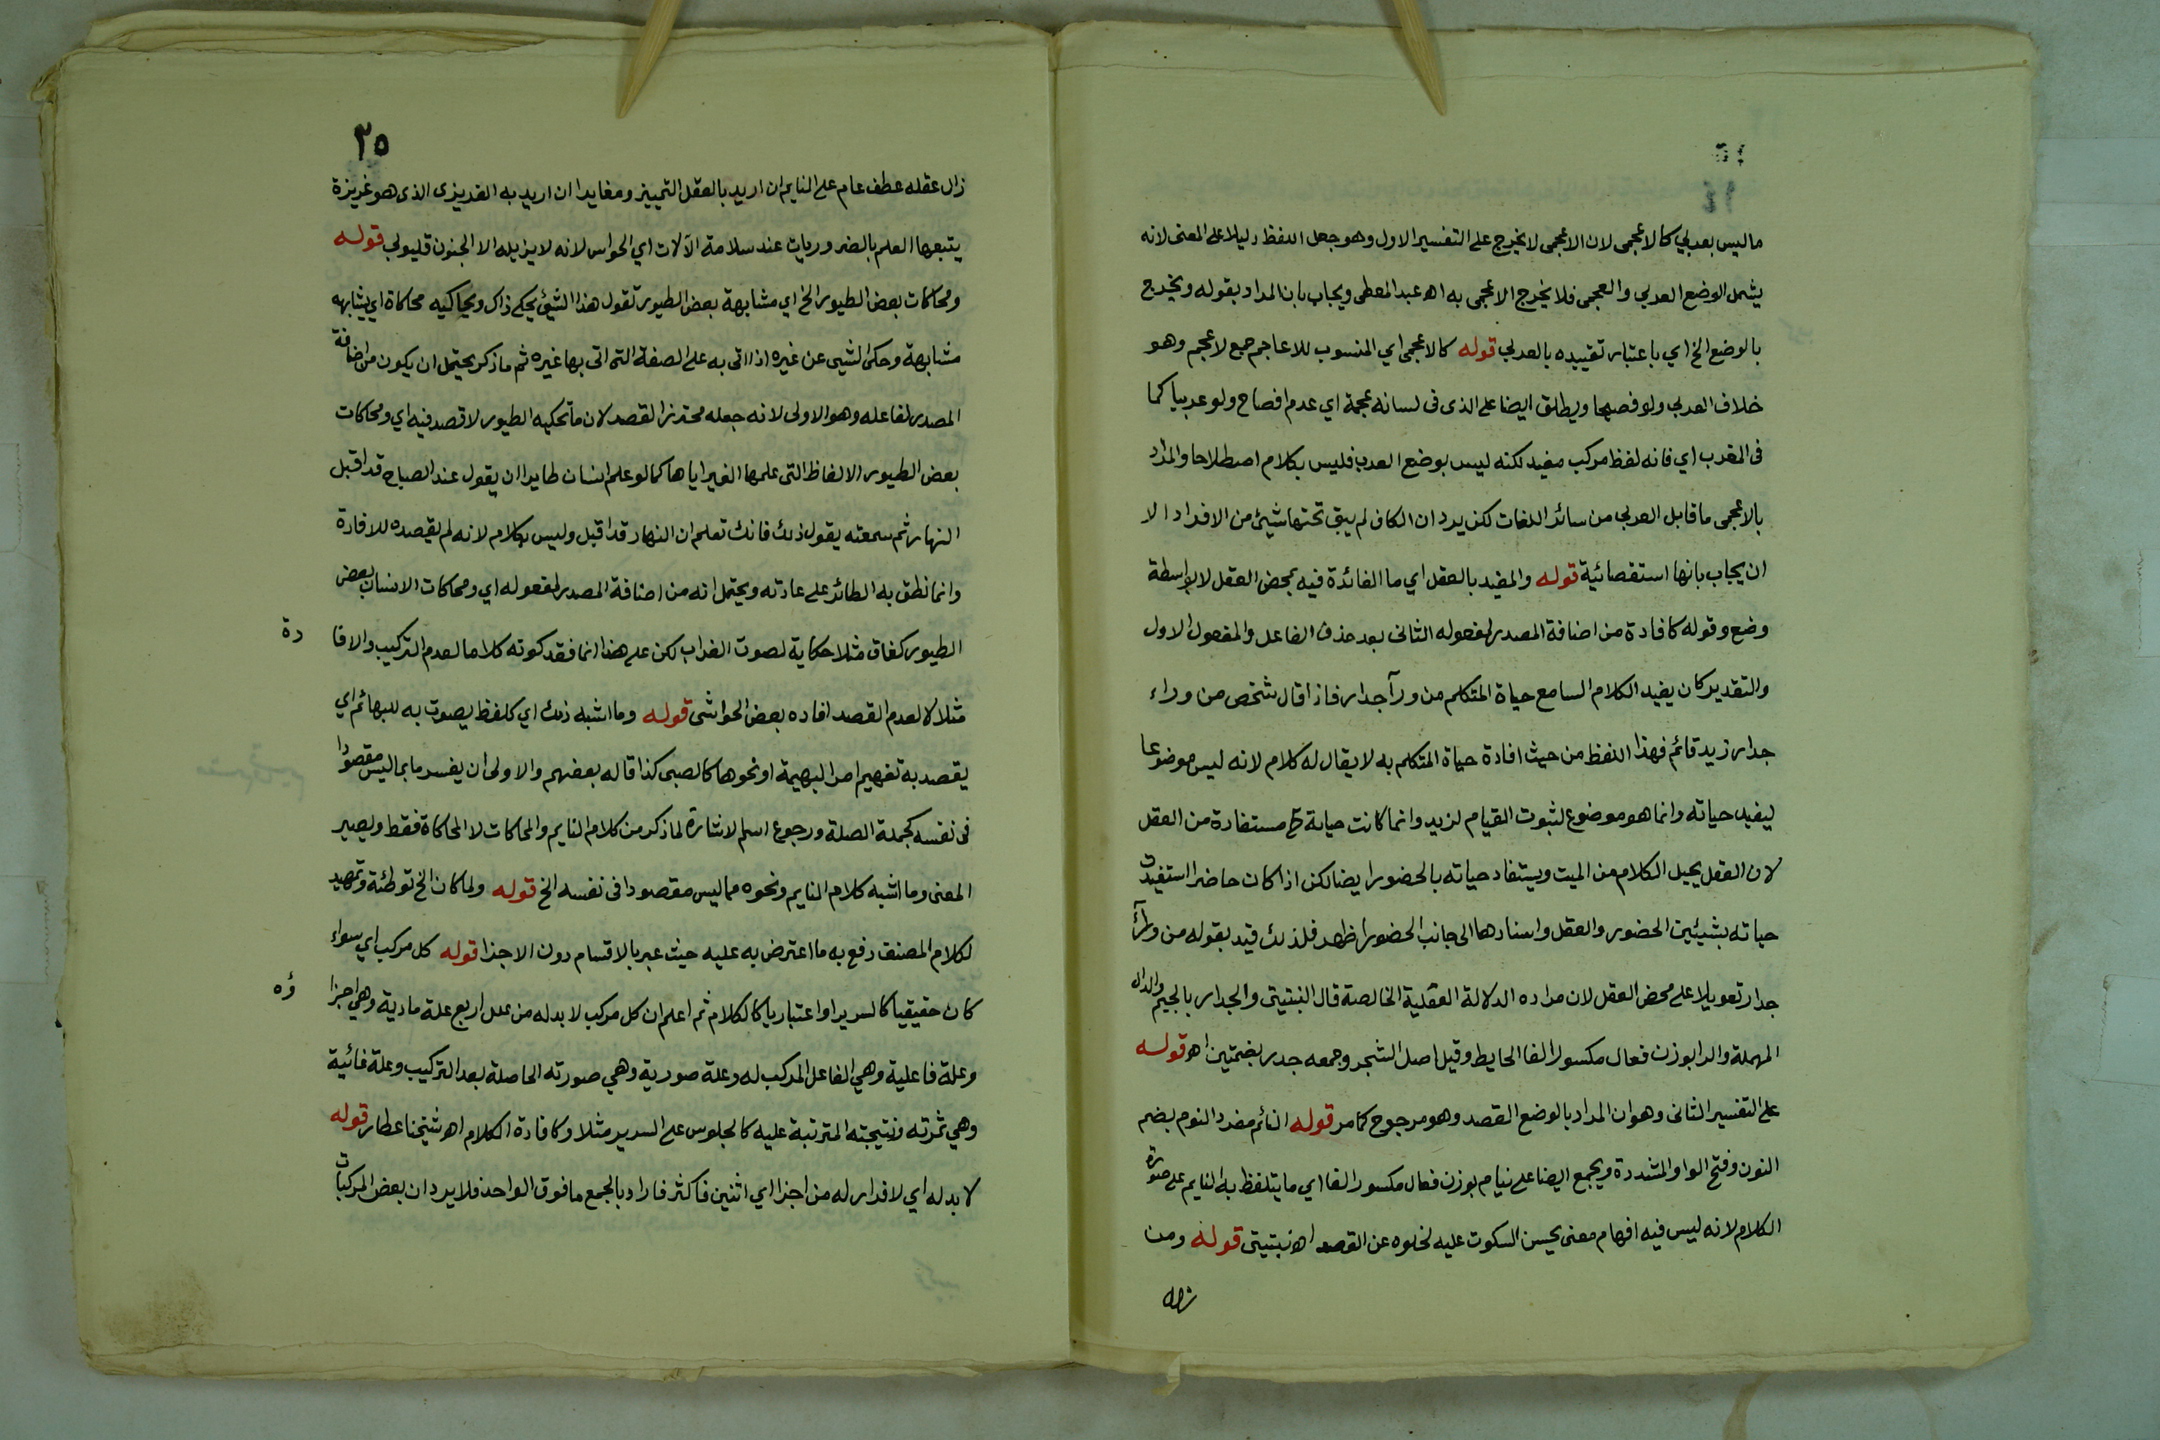 ما ليس بعربي كالاعجمى لان الاعجمى لا يخرج على التفسير الاول وهو جعل اللفظ دليلا على المعنى لانه
يشمل الوضع العربي والعجمى فلا يخرج الاعجمى به اه عبد المعطى ويجاب بان المراد بقوله ويخرج
بالوضع الخ اي باعتبار تقييده بالعربي قوله كالاعجمى اي المنسوب للاعاجم جمع لاعجم وهو
خلاف العربي ولو فصيحا ويطلق ايضا على الذى فى لسانه عجمة اي عدم افصاح ولو عربيا كما
فى المغرب اي فانه لفظ مركب مفيد لكنه ليس بوضع العرب فليس بكلام اصطلاحا والمراد
بالاعجمى ما قابل العربي من سائر اللغات لكن يرد ان الكاف لم يبق تحتها شيئ من الافراد الا
ان يجاب بانها استقصائية قوله والمفيد بالعقل اي ما الفائدة فيه بمحض العقل لا بواسطة
وضع وقوله كافادة من اضافة المصدر لمفعوله الثانى بعد حذف الفاعل والمفعول الاول
والتقدير كان يفيد الكلام السامع حياة المتكلم من ورآ جدار فاذا قال شخص من وراء
جدار زيد قائم فهذا اللفظ من حيث افادة حياة المتكلم به لا يقال له كلام لانه ليس موضوعا
ليفيد حياته وانما هو موضوع لثبوت القيام لزيد وانما كانت حياته ح مستفادة من العقل
لان العقل يحيل الكلام من الميت ويستفاد حياته بالحضور ايضا لكن اذا كان حاضرا استفيدت
حياته بشيئين الحضور والعقل واسنادها الى جانب الحضور اظهر فلذلك قيد بقوله من ورآء
جدار تعويلا على محض العقل لان مراده الدلالة العقلية الخالصة قال النبتيتى والجدار بالجيم والدال
المهملة والرا بوزن فعال مكسور الفا الحايط وقيل اصل الشجر وجمعه جدر بضمتين اه قوله
على التفسير الثانى وهو ان المراد بالوضع القصد وهو مرجوح كما مر قوله النائم مفرد النوم بضم
النون وفتح الواو المشددة ويجمع ايضا على نيام بوزن فعال مكسور الفا اي ما يتلفظ به النايم على صورة
الكلام لانه ليس فيه افهام معنى يحسن السكوت عليه لخلوه عن القصد اه نبتيتى قوله ومن
زال
٢٥
زال عقله عطف عام على النايم ان اريد بالعقل التمييز ومغايرا ان اريد به الغريزى الذى هو غريزة
يتبعها العلم بالضروريات عند سلامة الآلات اي الحواس لانه لا يزيله الا الجنون قليوبي قوله
ومحاكات بعض الطيور الخ اي مشابهة بعض الطيور تقول هذا الشيئ يحكى ذاك ويحاكيه محاكاة اي يشابهه
مشابهة وحكى الشيى عن غيره اذا اتى به على الصفة التى اتى بها غيره ثم ما ذكر يحتمل ان يكون من اضافة
المصدر لفاعله وهو الاولى لانه جعله محترز القصد لان ما تحكيه الطيور لا قصد فيه اي ومحاكات
بعض الطيور الالفاظ التى علمها الغير اياها كما لو علم انسان طايرا ان يقول عند الصباح قد اقبل
النهار ثم سمعته يقول ذلك فانك تعلم ان النهار قد اقبل وليس بكلام لانه لم يقصده للافادة
وانما نطق به الطائر على عادته ويحتمل انه من اضافة المصدر لمفعوله اي ومحاكات الانسان بعض
الطيور كغاق مثلا حكاية لصوت الغراب لكن على هذا انما فقد كونه كلاما لعدم التركيب والافا
دة
مثلا لا لعدم القصد افاده بعض الحواشى قوله وما اشبه ذلك اي كلفظ يصوت به للبهائم اي
يقصد به تفهيم امر البهيمة او نحوها كالصبى كذا قاله بعضهم والاولى ان يفسر ما بما ليس مقصودا
فى نفسه كجملة الصلة ورجوع اسم الاشارة لما ذكر من كلام النايم والمحاكات لا المحاكاة فقط ويصير
المعنى وما اشبه كلام النايم ونحوه مما ليس مقصودا فى نفسه الخ قوله ولما كان الخ توطئة وتمهيد
لكلام المصنف دفع به ما اعترض به عليه حيث عبر بالاقسام دون الاجزا قوله كل مركب اي سواء
كان حقيقيا كالسرير او اعتباريا كالكلام ثم اعلم ان كل مركب لا بد له من علل اربع علة مادية وهي اجزا
ؤه
وعلة فاعلية وهي الفاعل المركب له وعلة صورية وهي صورته الحاصلة بعد التركيب وعلة غائية
وهي ثمرته ونتيجته المترتبة عليه كالجلوس على السرير مثلا وكافادة الكلام اه شيخنا عطار قوله
لا بد له اي لا فرار له من اجزا اي اثنين فاكثر فاراد بالجمع ما فوق الواحد فلا يرد ان بعض المركبات